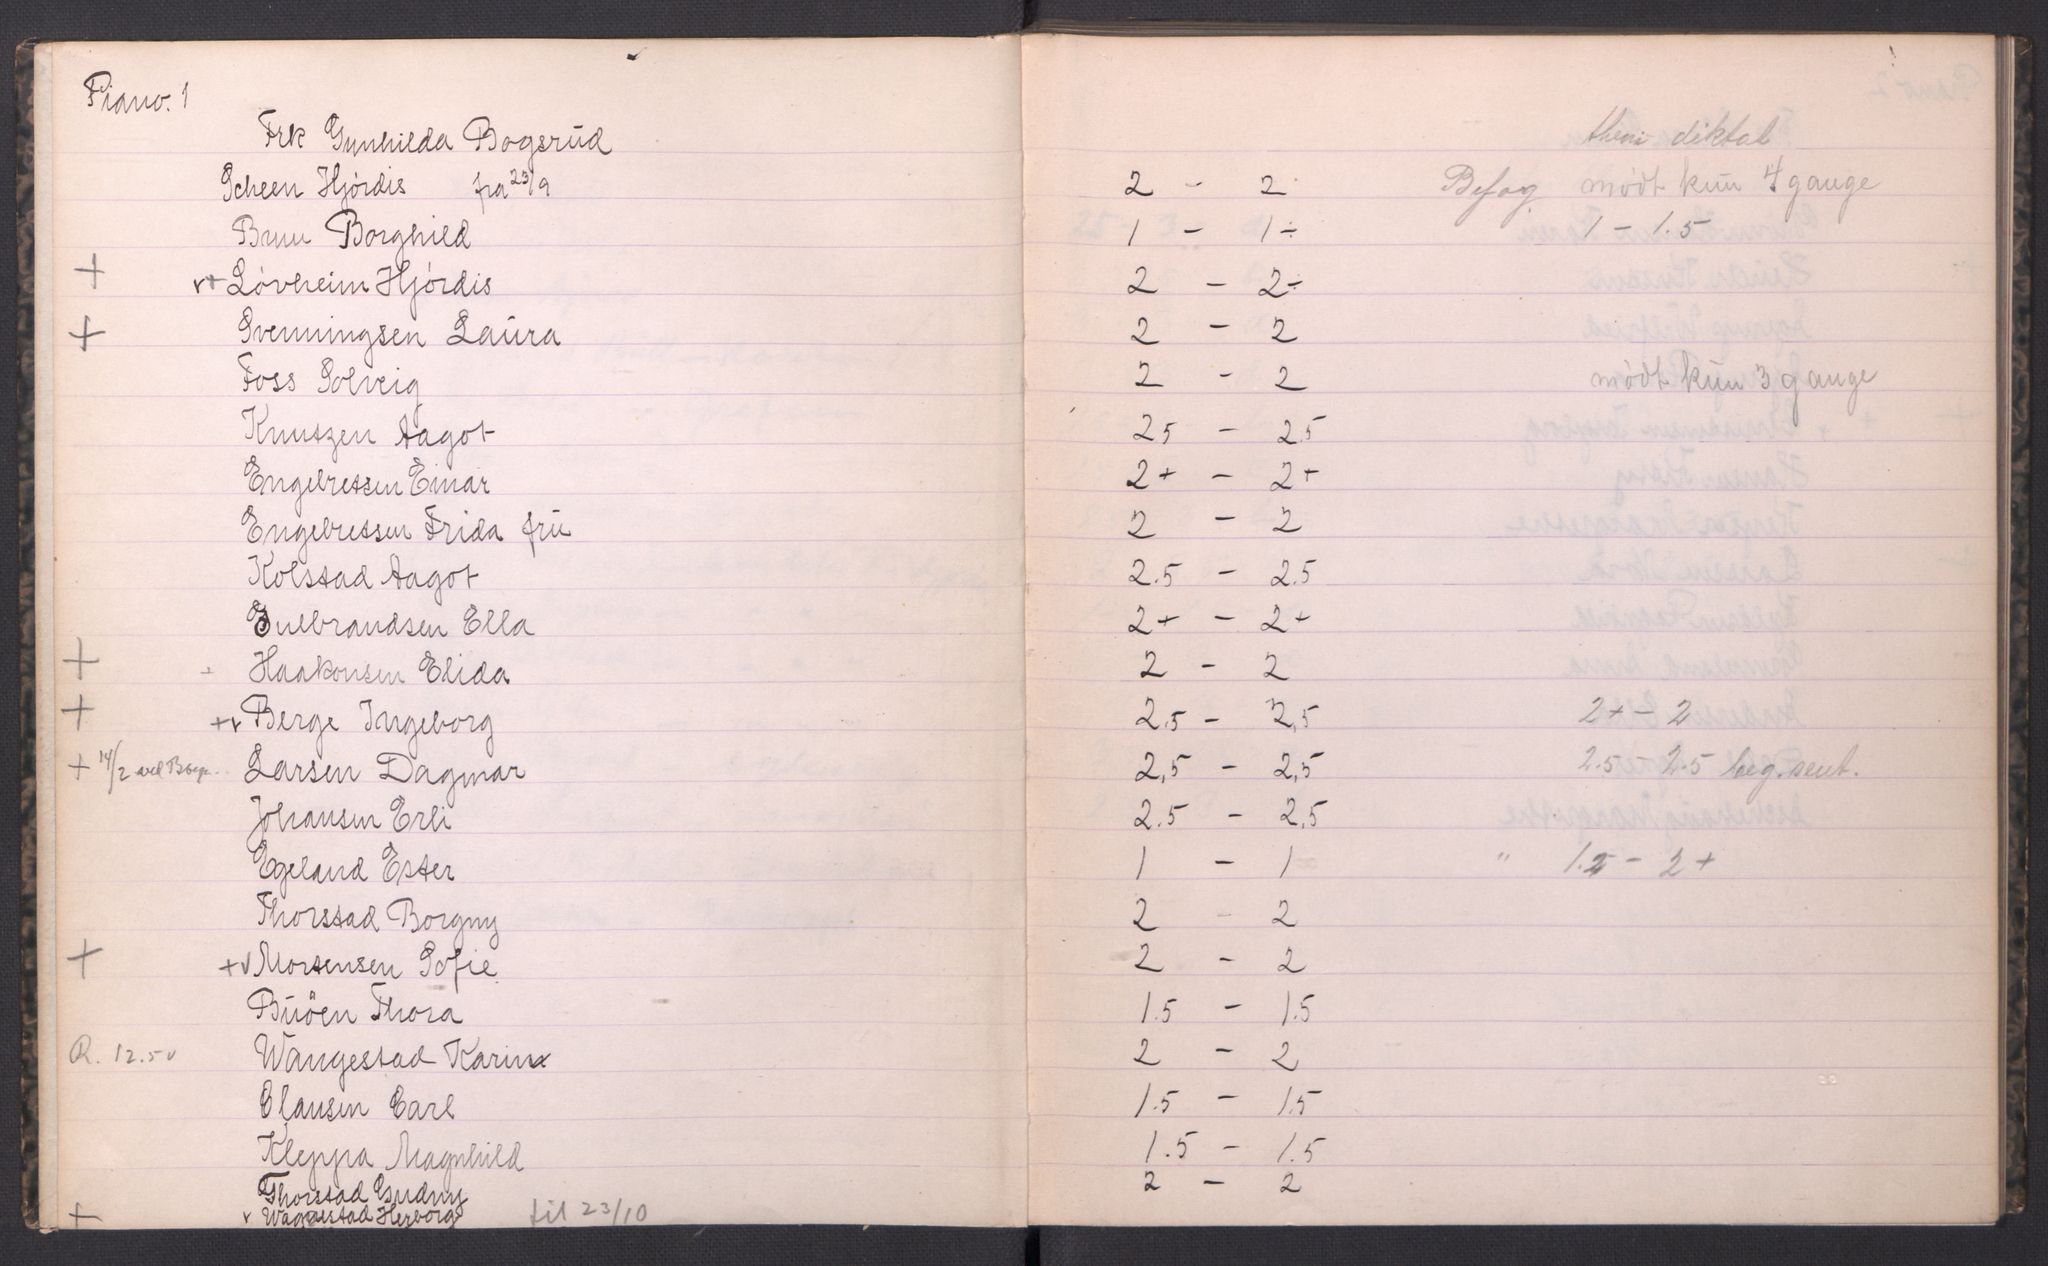 Piano. 1
Frk Gunhilda Bogsrud
teori diktat
Scheen Hjórdis fra 23/9 2 - 2 Befog mødt kun 4 gange
Bruu Borghild 1 - 1÷ 1 - 1.5
+ v+ Lóvheim Hjórdis 2 - 2÷
+ Svenningsen Laura 2 - 2
Foss Solveig 2 - 2 mødt kun 3 gange
Knutzen Aagot 2.5 - 2.5
Engebretsen Einar 2+ - 2+
Engebretsen Frida fru 2 - 2
Kolstad Aagot 2.5 - 2.5
Gulbrandsen Ella 2+ - 2+
+ Haakonsen Elida 2 - 2
+ +v Berge Ingeborg 2.5 - 2,5 2+ - 2
+ 14/2 Larsen Dagmar 2,5 - 2,5 2.5 - 2.5 beg. sent.
Johansen Erli 2.5 - 2,5
Egeland Ester 1 - 1 " 1.5 - 2+
Thorstad Borgny 2 - 2
+ +v Mortensen Sofie 2 - 2
Buöen Thora 1.5 - 1.5
R. 12.50 Wangestad Karin 2 - 2
Clausen Carl 1.5 - 1.5
Kleppa Magnhild 1.5 - 1.5
Thorstad Gudny 2 - 2
+ v Wangestad Herborg til 23/10